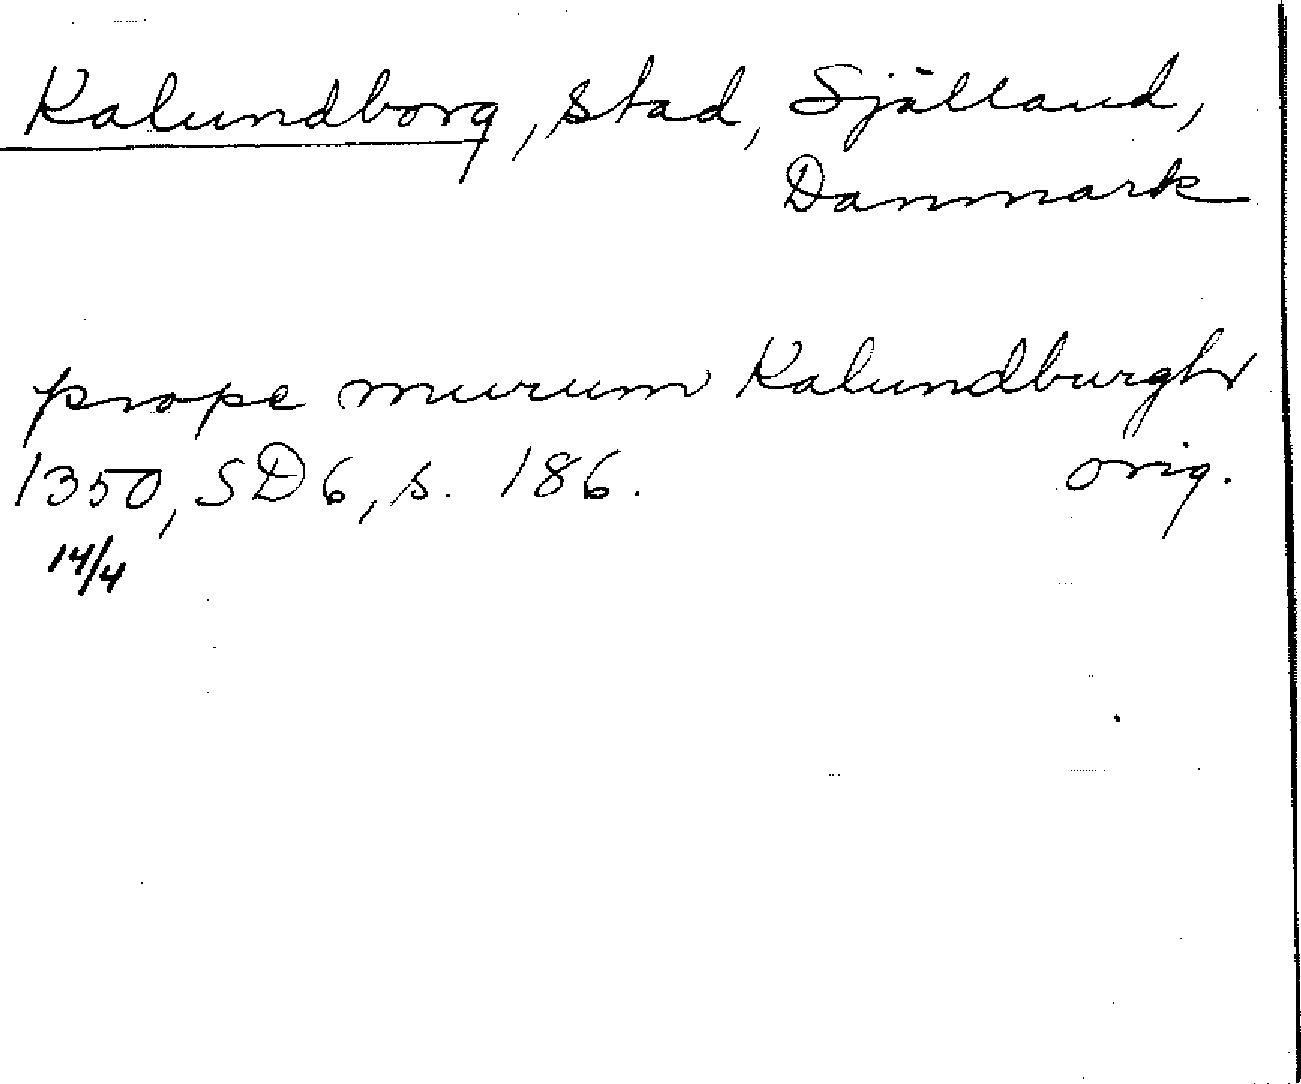 Kalundborg, stad, Själland,
Danmark
prope murum Kalundburgh
1350, SD 6, s. 186. orig.
14/4